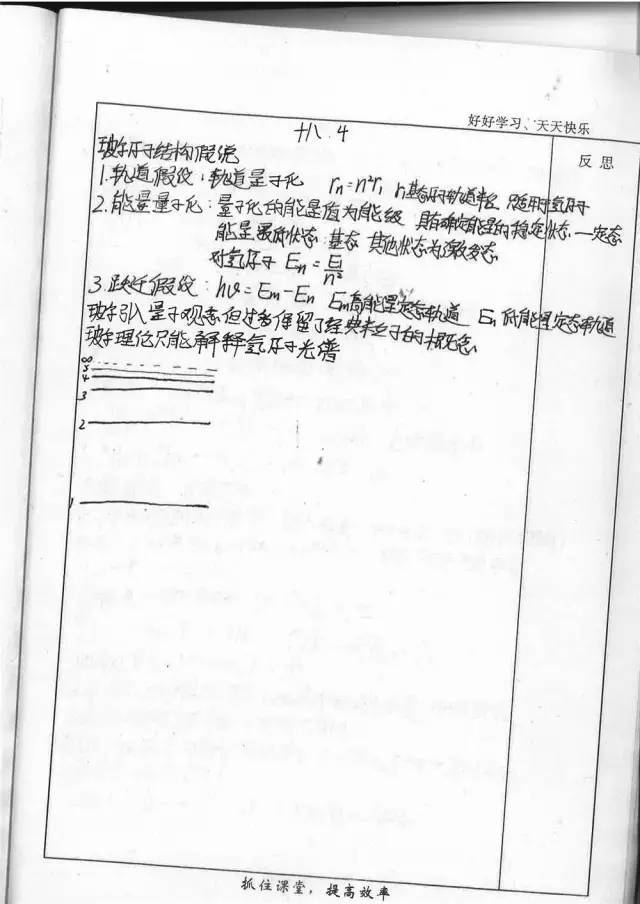 好好学习、天天快乐
十八.4
反思
玻尔原子结构假说
1.轨道假设:轨道量子化 rn=n²r1 r1基态原子轨道半径 只适用于氢原子
2.能量量子化:量子化的能量值为能级 具有确定能量的稳定状态 — 定态
能量最低状态:基态 其他状态为激发态
对氢原子 En=E1/n²
3.跃迁假设:hν=Em-En Em高能量定态轨道 En低能量定态轨道
玻尔引入量子观念但过多保留了经典粒子的概念
玻尔理论只能解释氢原子光谱
∞
5
4
3
2
1
抓住课堂,提高效率